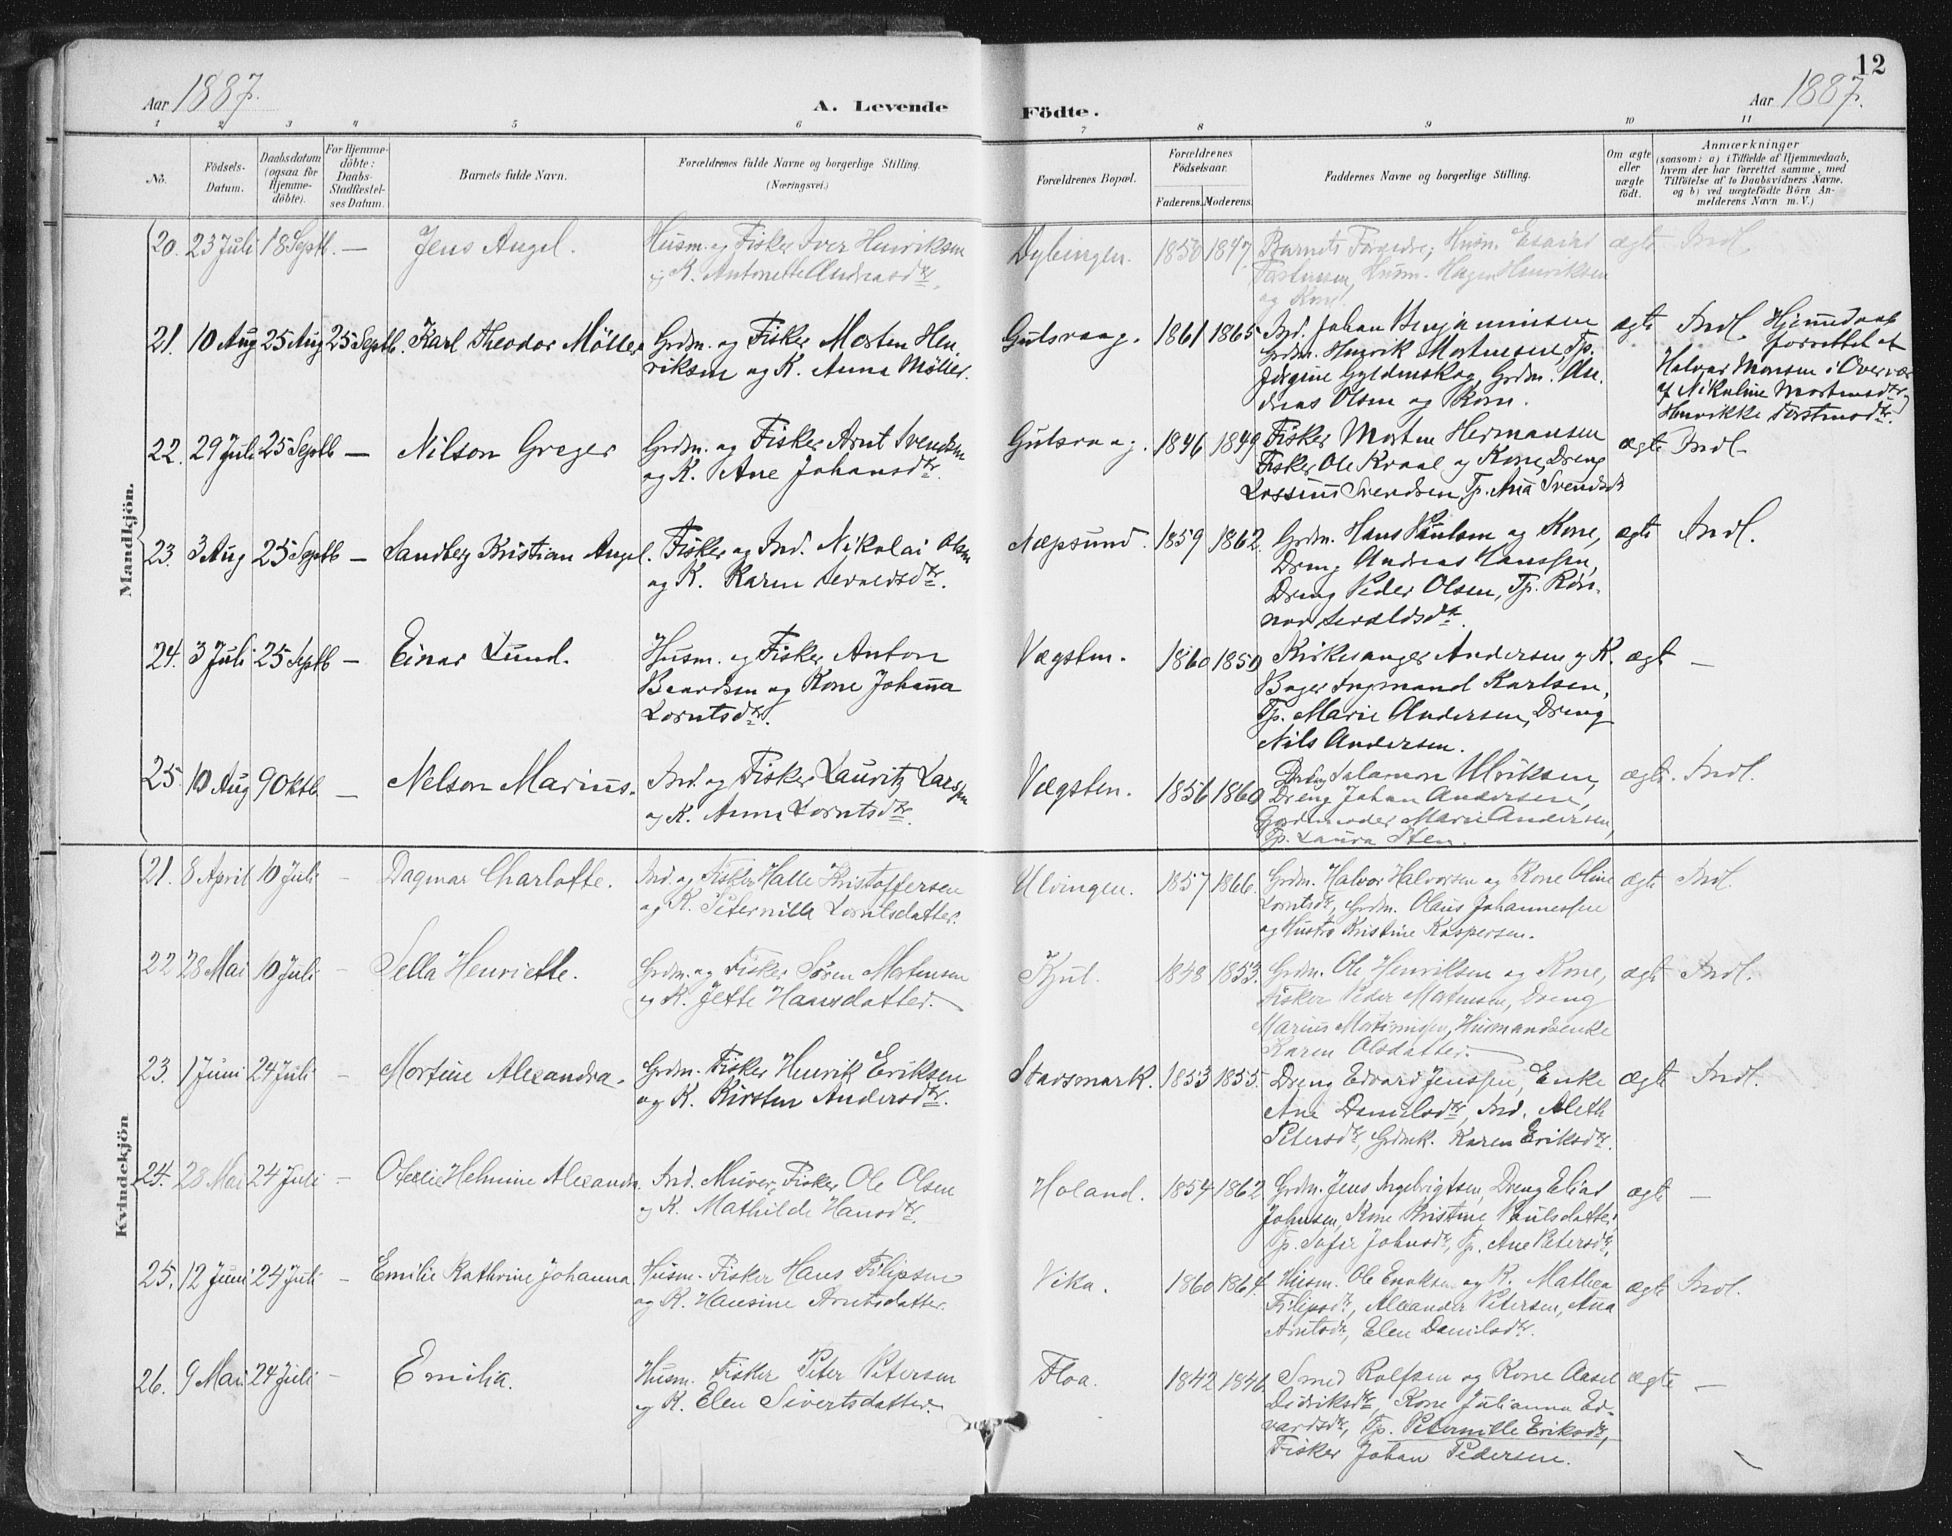 12
Aar 1887.
A. Levende Födte.
Aar 1887.
1 2 3 4 5 6 7 8 9 10 11
No.
Födsels-
Datum.
Daabsdatum
(ogsaa for
Hjemme-
döbte).
For Hjemme-
döbte:
Daabs-
Stadfæstel-
ses Datum.
Barnets fulde Navn.
Forældrenes fulde Navne og borgerlige Stilling.
(Næringsvei.)
Forældrenes Bopæl.
Forældrenes
Födselsaar.
Faderens. Moderens.
Faddernes Navne og borgerlige Stilling.
Om ægte
eller
uægte
födt.
Anmærkninger
(saasom: a) i Tilfælde af Hjemmedaab,
hvem der har forrettet samme, med
Tilföielse af to Daabsvidners Navne,
og b) ved uægtefödte Börn An-
melderens Navn m. V.)
Mandkjön.
20. 23 Juli 18 Septb. — Jens Angel. Husm. og Fisker Iver Henriksen
og K. Antonette Andreasdtr.
Dybingen. 1850 1847. Barnets Forældre, Husm. Esaias
Torstensen, Husm. Hagen Henriksen
og Kone.
ægte Indl.
21. 10 Aug 25 Aug 25 Septb. Karl Theodor Möller Grdm. og Fisker Morten Hen-
riksen og K. Anna Möller.
Gulsvaag. 1861 1865 Ind. Johan Benjaminsen
Grdm. Henrik Mortensen, Tp.
Jörgine Gyldenskog, Grdm. An-
dreas Olsen og Kone.
ægte Indl. Hjemmedaab
forrettet af
Halvar Monsen i Overvær
af Nikoline Mortensdtr,
Henrikke Torstensdtr.
22. 29 Juli 25 Septb — Nilson Greger Grdm. og Fisker Arnt Svendsen
og K. Ane Johansdtr.
Gulsvaag. 1846 1849 Fisker Morten Hermansen
Fisker Ole Kvaal og Kone, Dreng
Lossius Svendsen, Tp. Ana Svendsdtr
ægte Indl.
23. 3 Aug 25 Septb — Sandberg Kristian Angel. Fisker og Ind. Nikolai Olsen
og K. Karen Sevaldsdtr.
Næpsund. 1859 1862. Grdm. Hans Paulsen og Kone,
Dreng Andreas Hanssen,
Dreng Peder Olsen, Tp. Ron-
nov Sevaldsdtr.
ægte Indl.
24. 3 Juli 25 Septb — Einar Lund. Husm. og Fisker Anton
Baardsen og Kone Johanna
Lorntsdtr.
Vægsten. 1860 1850 Kirkesanger Andersen og K.
Bager Ingmand Karlsen,
Tp. Marie Andersen, Dreng
Nils Andersen.
ægte —
25 10 Aug 9 Oktb. — Nelson Marius. Ind. og Fisker Lauritz Larssen
og K. Anna Lorntsdtr.
Vægsten. 1856 1860 Dreng Salamon Ulriksen,
Dreng Johan Andersen,
Marie Andersen,
Tp. Laura Sten.
ægte. Indl.
Kvindekjön
21. 8 April 10 Juli — Dagmar Charlotte. Ind. og Fisker Halle Kristoffersen
og K. Peternilla Lorntsdatter.
Ulvingen. 1857 1866. Grdm. Halvor Halvorsen og Kone Oline
Lorntsdtr, Grdm. Olaus Johannessen
og Hustro Kristine Kaspersen.
ægte Indl.
22 28 Mai 10 Juli — Sella Henriette. Grdm. og Fisker Sören Mortensen
og K. Jette Hansdatter.
Kjul. 1848 1853. Grdm. Ole Henriksen og Kone,
Fisker Peder Mortensen, Dreng
Marius Martinusen, Husmandsenke
Karen Olsdatter.
ægte Indl.
23. 1 Juni 24 Juli — Mortine Alexandra. Grdm. Fisker Henrik Eriksen
og K. Kirsten Andersdtr.
Stavsmark. 1853 1855. Dreng Edvard Jenssen, Enke
Ane Danilsdtr, Ind. Aleth
Petersdtr, Grdmk. Karen Eriksdtr.
ægte Indl.
24. 28 Mai 24 Juli — Helmine Alexandra. Ind. Murer, Fisker Ole Olsen
og K. Mathilde Hansdtr.
Holand. 1854 1862 Grdm. Jens Ingebrigtsen, Dreng Elias
Johnsen, Kone Kristine Paulsdatter,
Tp. Sofie Johnsdtr, Tp. Ane Petersdtr,
ægte —
25. 12 Juni 24 Juli — Emilie Kathrine Johanna Husm. Fisker Hans Filipsen
og K. Hansine Arntsdatter.
Vika. 1860 1864. Husm. Ole Enoksen og K. Mathea
Filipsdtr, Alexander Petersen, Ana
Arntsdtr, Elen Danilsdtr.
ægte Indl.
26. 9 Mai 24 Juli — Emilia. Husm. Fisker Peter Petersen
og K. Elen Sivertsdatter.
Floa. 1842 1846. Smed Rolfsen og Kone Aasel
Didriksdtr, Kone Julianna Ed-
vardsdtr, Tp. Peternille Eriksdtr,
Fisker Johan Pedersen.
ægte —